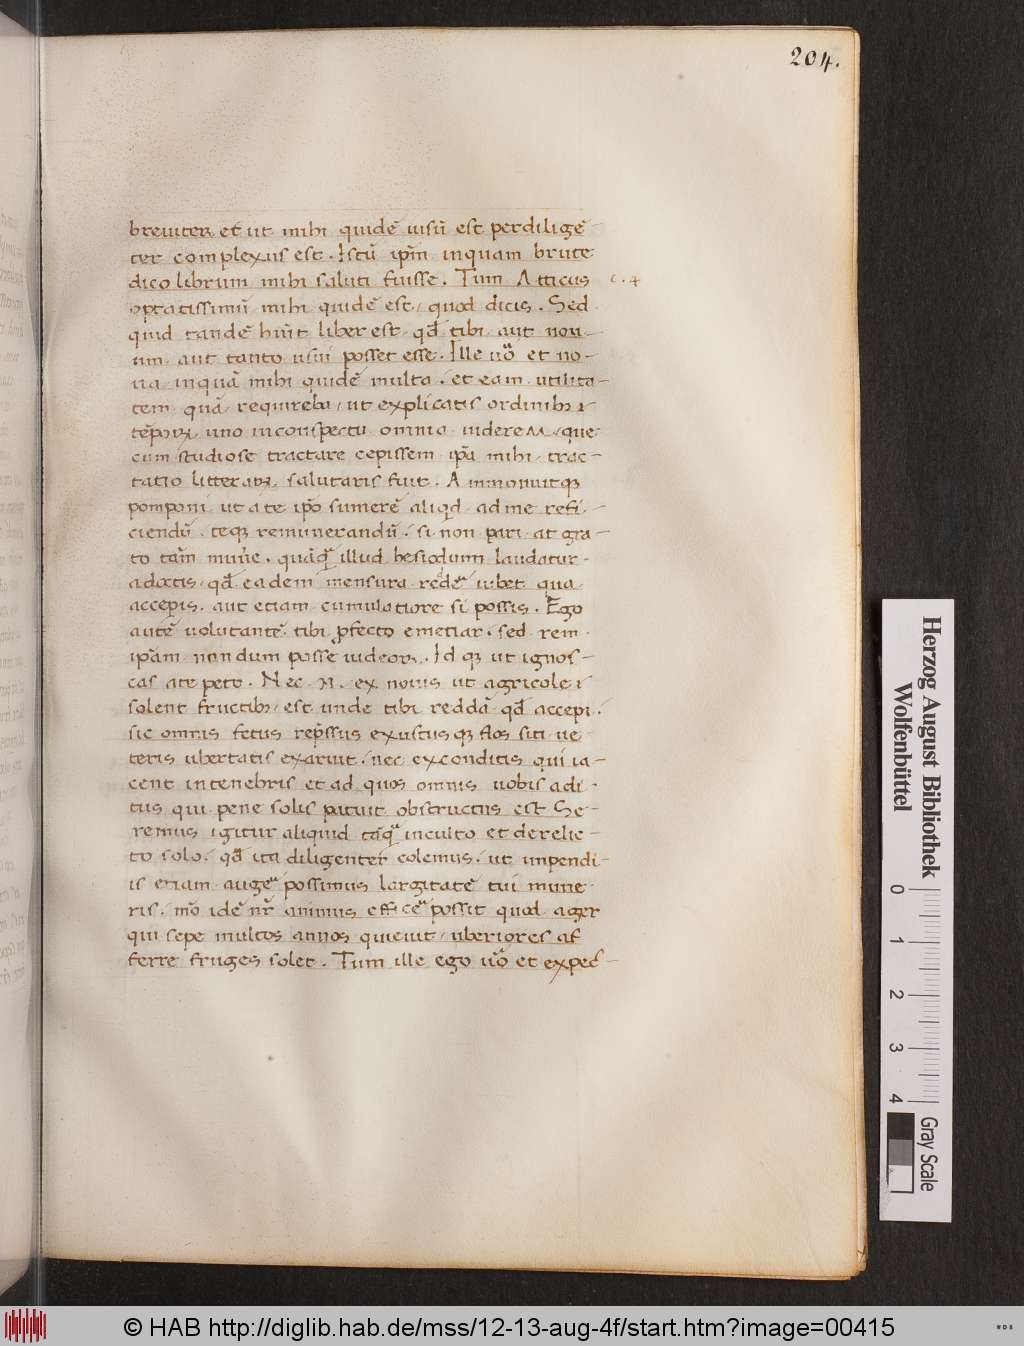 204.
breuiter et ut mihi quidē uisū est perdiligē-
ter complexus est. Istū ip̄m inquam brute
dico librum mihi saluti fuisse. Tum Atticus
c. 4
optatissimū mihi quidē est, quod dicis. Sed
quid tandē hūit liber est, qd̄ tibi aut nou-
um aut tanto usui posset esse. Ille uō et no-
ua inquā mihi quidē multa, et eam utilita-
tem quā requirebā, ut explicatis ordinibꝫ
tēporꝝ uno inconspectu omnia uiderem, que
cum studiose tractare cepissem ip̄a mihi trac-
tatio litterarꝝ salutaris fuit. Ammonuitqꝫ
pomponi ut a te ip̄o sumerē aliqid ad me refi-
ciendū, teqꝫ remunerandū, si non pari at gra-
to tam̄ mun̄e, quāqͣ illud hesiodum laudatur
adoctis, qd̄ eadem mensura redde iubet qua
acceperis, aut etiam cumulatiore si possis. Ego
autē uolutantē tibi ꝓfecto emetiar, sed rem
ipsam nondum posse uideor. Id qꝫ ut ignos-
cas a te peto. Nec .N. ex nouis ut agricole
solent fructibꝫ est unde tibi reddā qd̄ accepi,
sic omnis fetus rep̄ssus exustusqꝫ flos siti ue-
teris ubertatis exaruit, nec exconditis qui ia-
cent intenebris et ad quos omnis nobis adi-
tus qui pene solis patuit obstructus est Se-
remus igitur aliquid tāqͣ inculto et derelic-
to solo, qd̄ ita diligenter colemus, ut impendi-
is etiam augere possimus largitatē tui mune
ris, mō idē nr̄ animus efficere possit quod ager
qui sepe multos annos quieuit, uberiores af
ferre fruges solet. Tum ille ego uō et expec-
Herzog August Bibliothek
Wolfenbüttel
0 1 2 3 4
Gray Scale
© HAB http://diglib.hab.de/mss/12-13-aug-4f/start.htm?image=00415